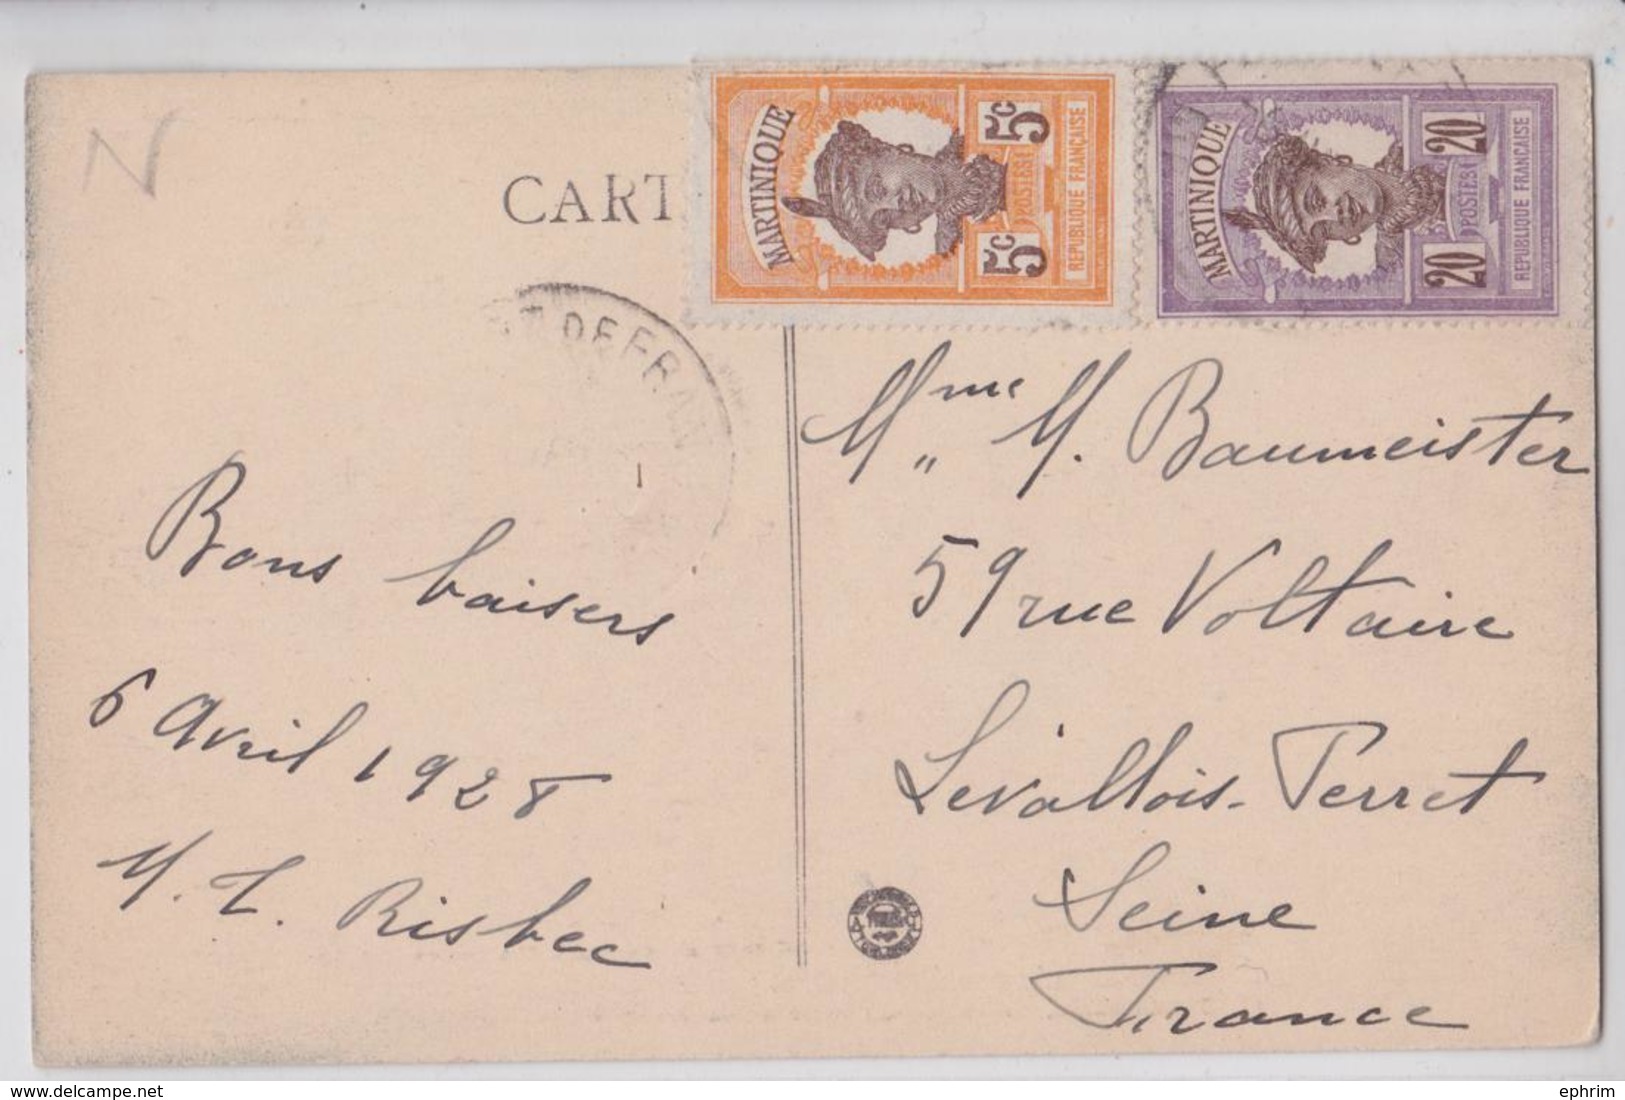 N
CART
MARTINIQUE
5c
5c
POSTES
REPUBLIQUE FRANÇAISE
MARTINIQUE
20
20
POSTES
REPUBLIQUE FRANÇAISE
T DE FRAN
Bons baisers
6 Avril 1928
M. L. Risbec
Mme M. Baumeister
59 rue Voltaire
Levallois-Perret
Seine
France
delcampe.net
ephrim